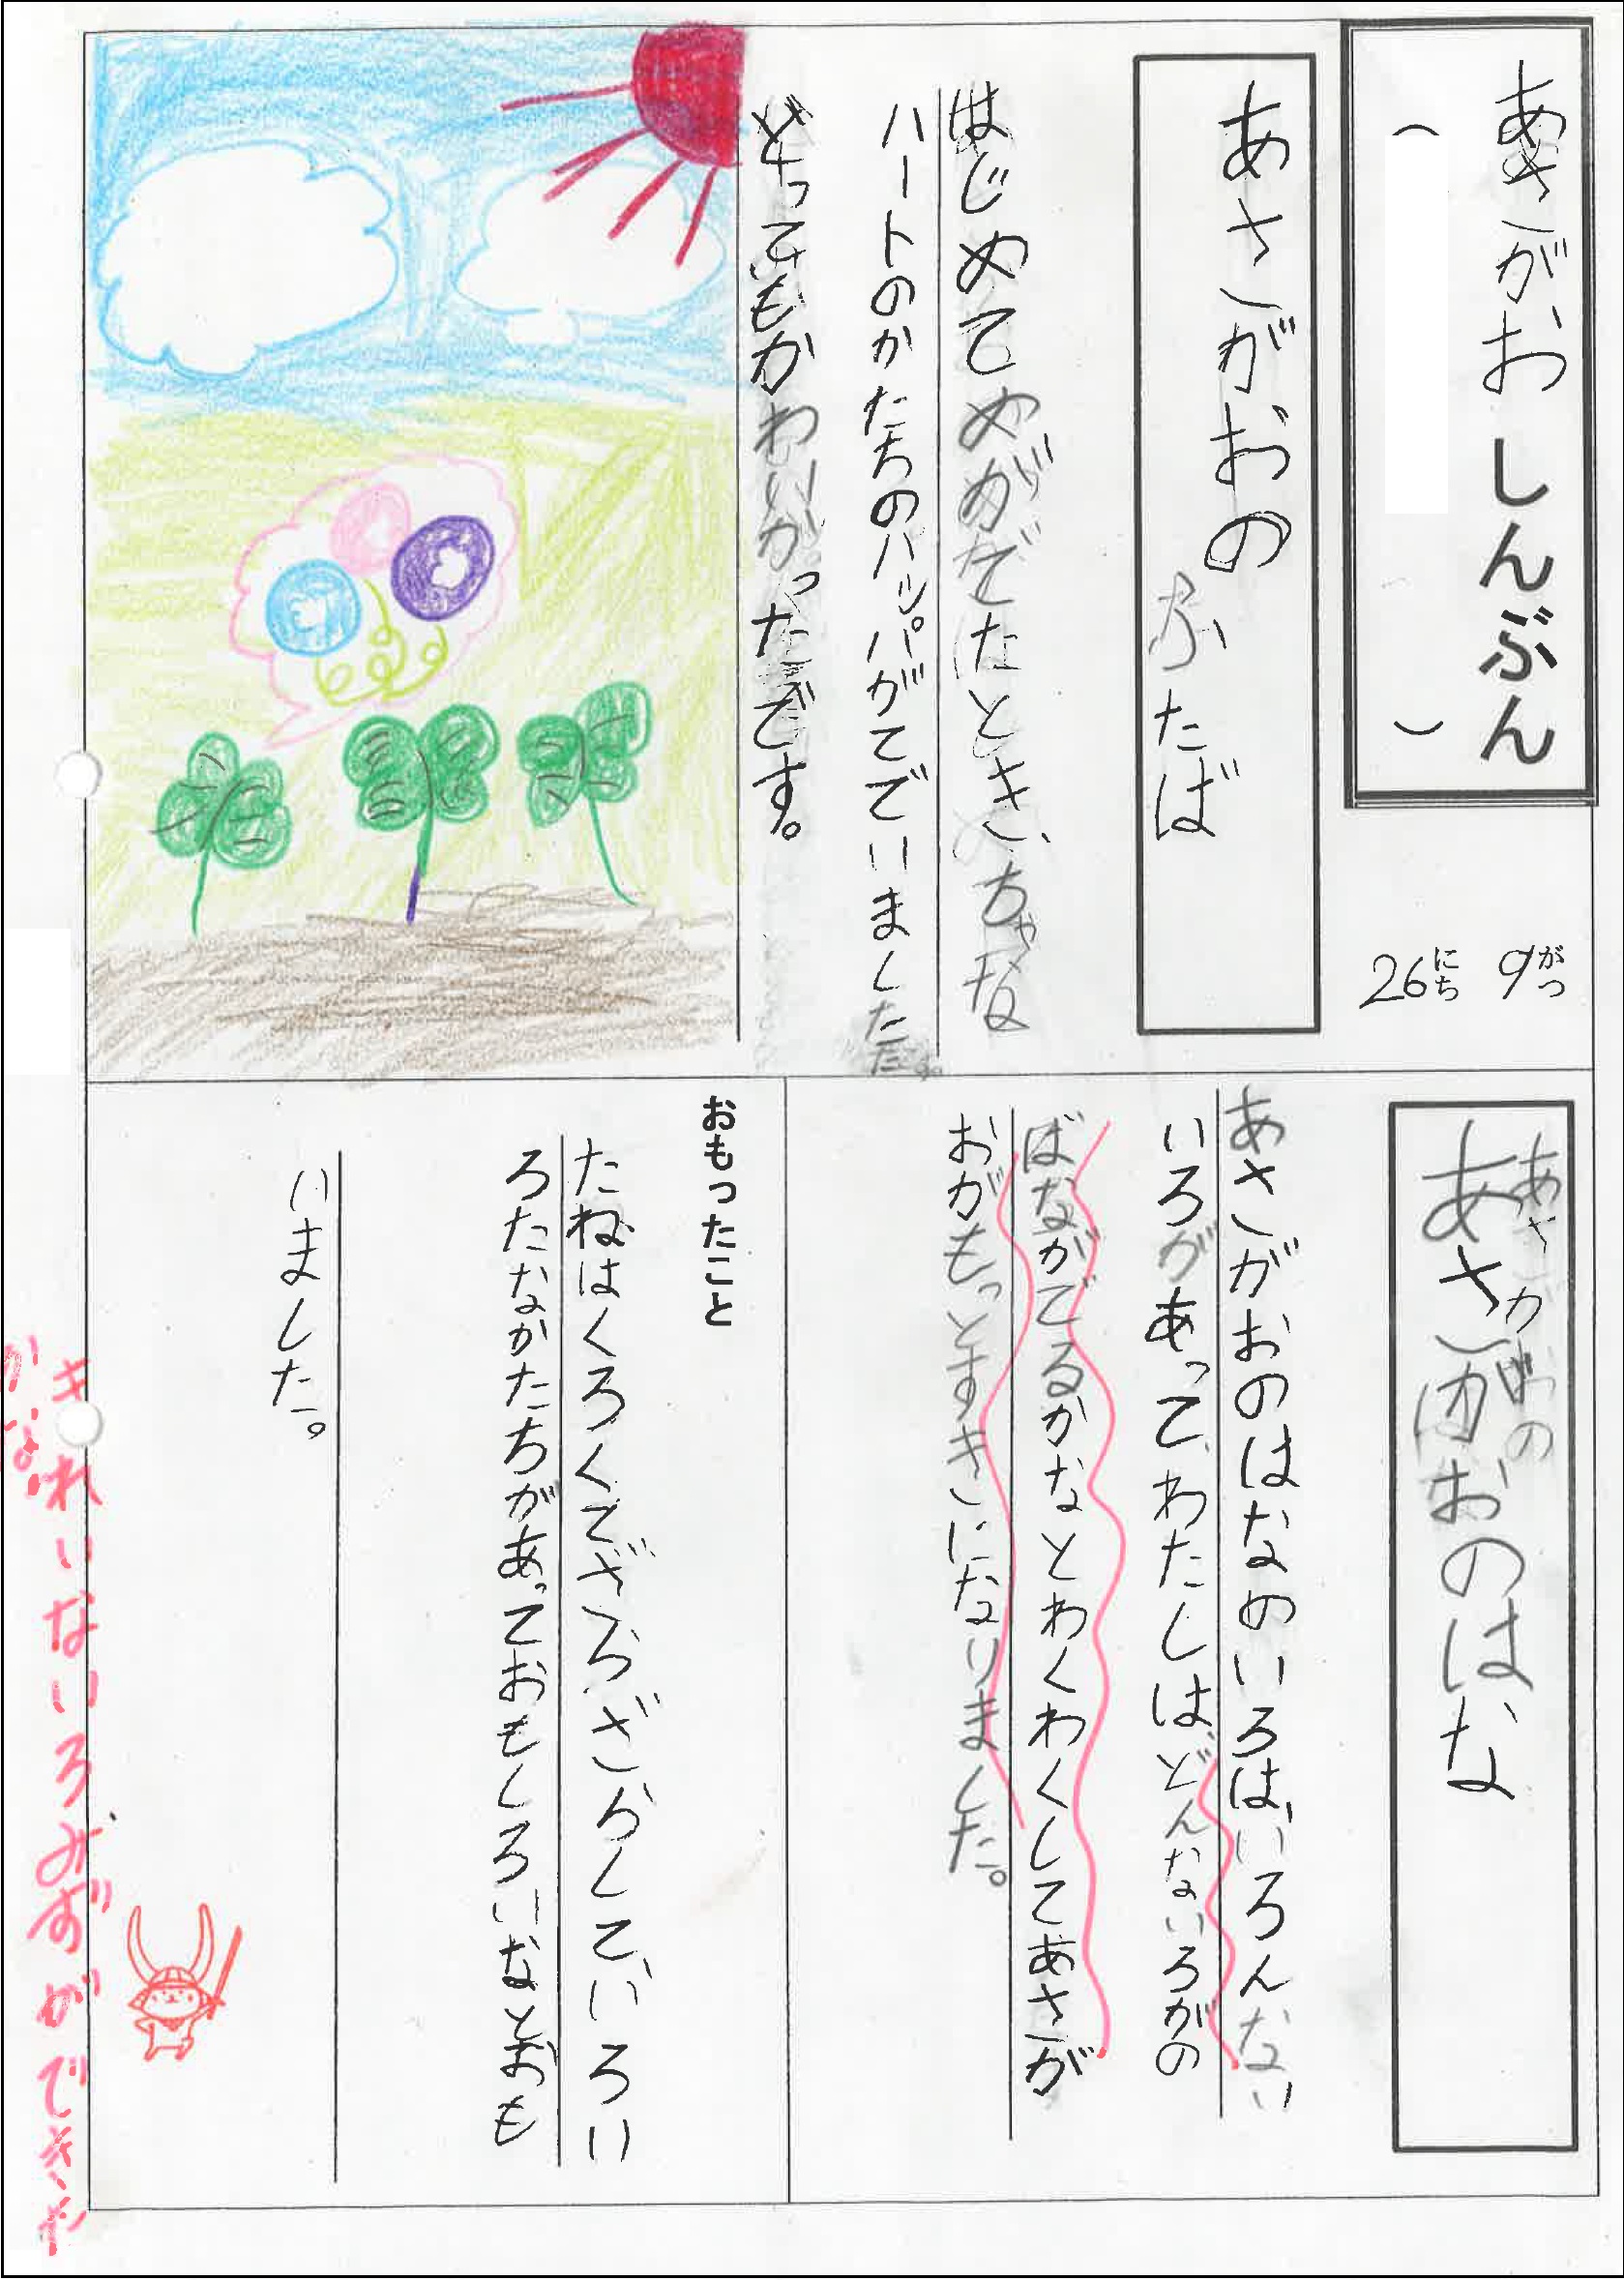 あさがおしんぶん
（　）
9がつ
26にち
あさがおの
ふたば
はじめてめがでたとき、ちゃな
ハートのかたちのハッパがでていました。
とってもかわいかったです。
あさがおのはな
あさがおのはなのいろは、いろんない
いろがあって、わたしは、どんないろがの
ばながでるかなとわくわくしてあさが
おがもっとすきになりました。
おもったこと
たねはくろくてざらざらしていろい
ろたなかたちがあっておもしろいなとおも
いました。
きれいないろみずができた
かな